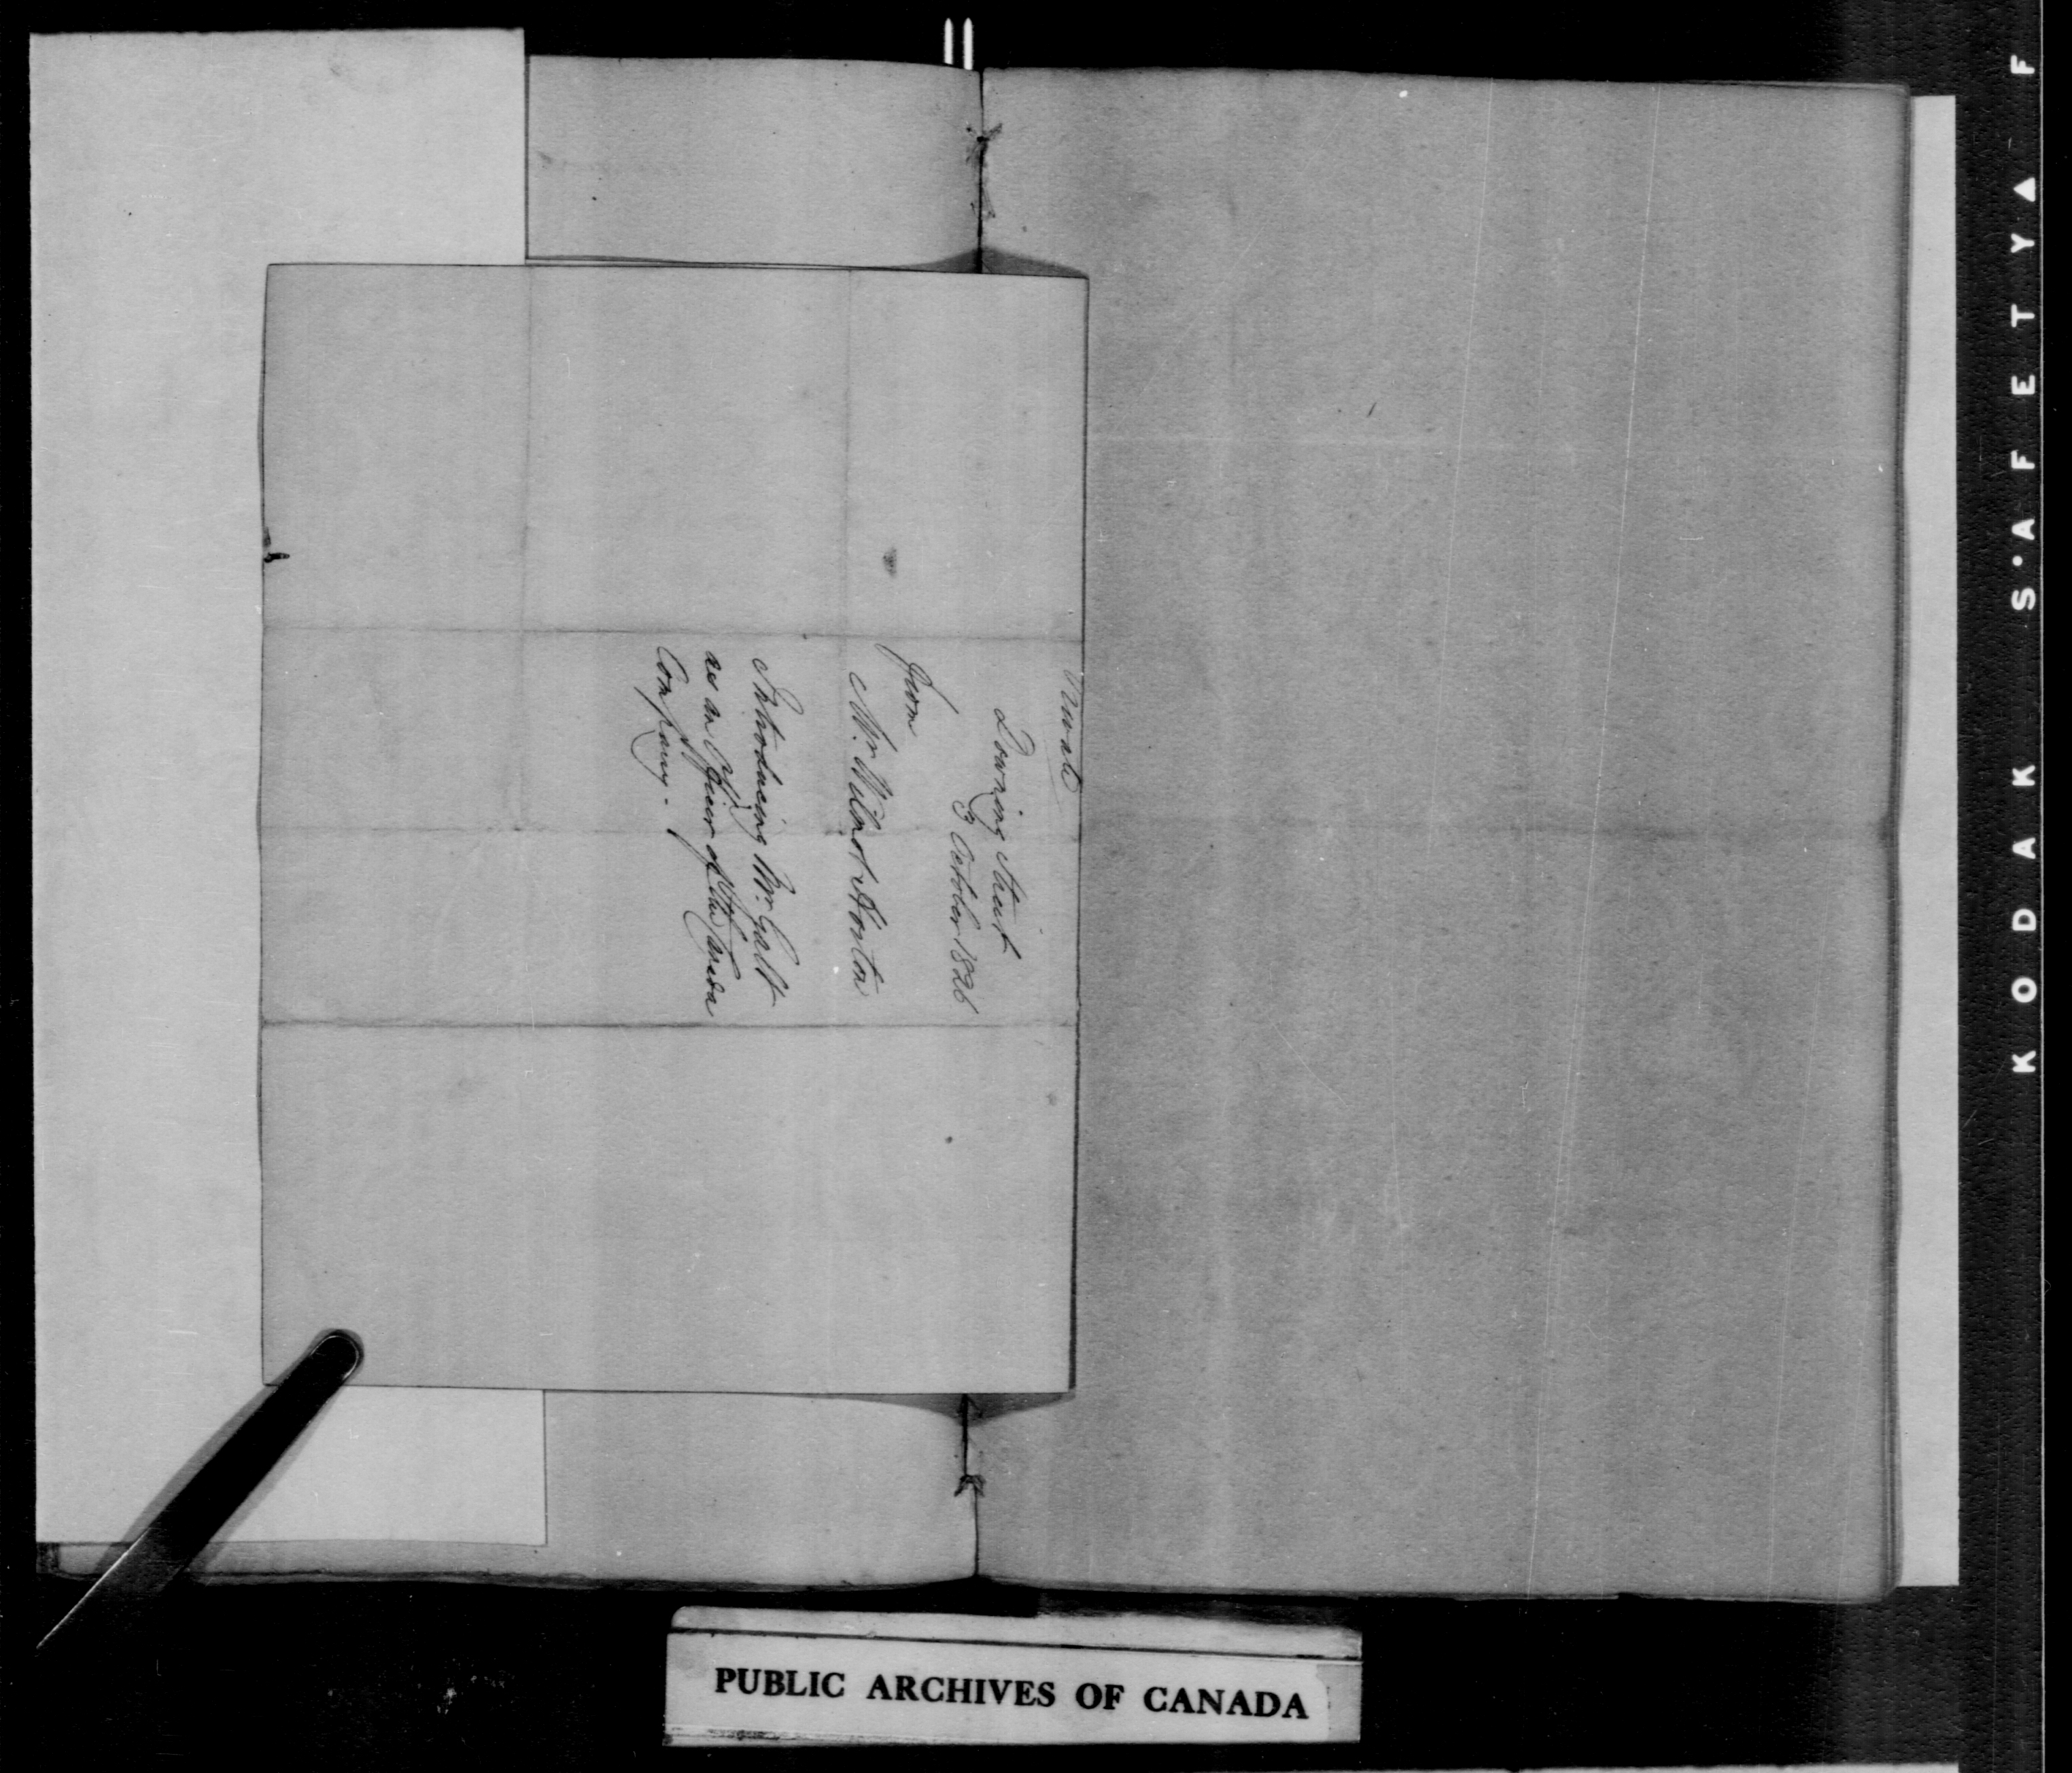 Private
Downing Street
3 October 1826
From
Mr. Wilmot Horton
Introducing Mr. Galt
as an Officer of the Canada
Company.
PUBLIC ARCHIVES OF CANADA
KODAK S·AFETY▲F